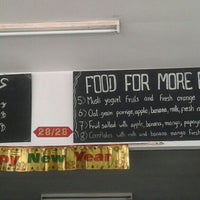 S
FOOD FOR MORE
5) Musli yogurt fruits and fresh orange
6) Oat grain porrige, apple, banana, milk, fresh
7) Fruit salad with apple, banana, mango, papaya
8) Cornflakes with milk and banana mango fresh
28/28
py New Year